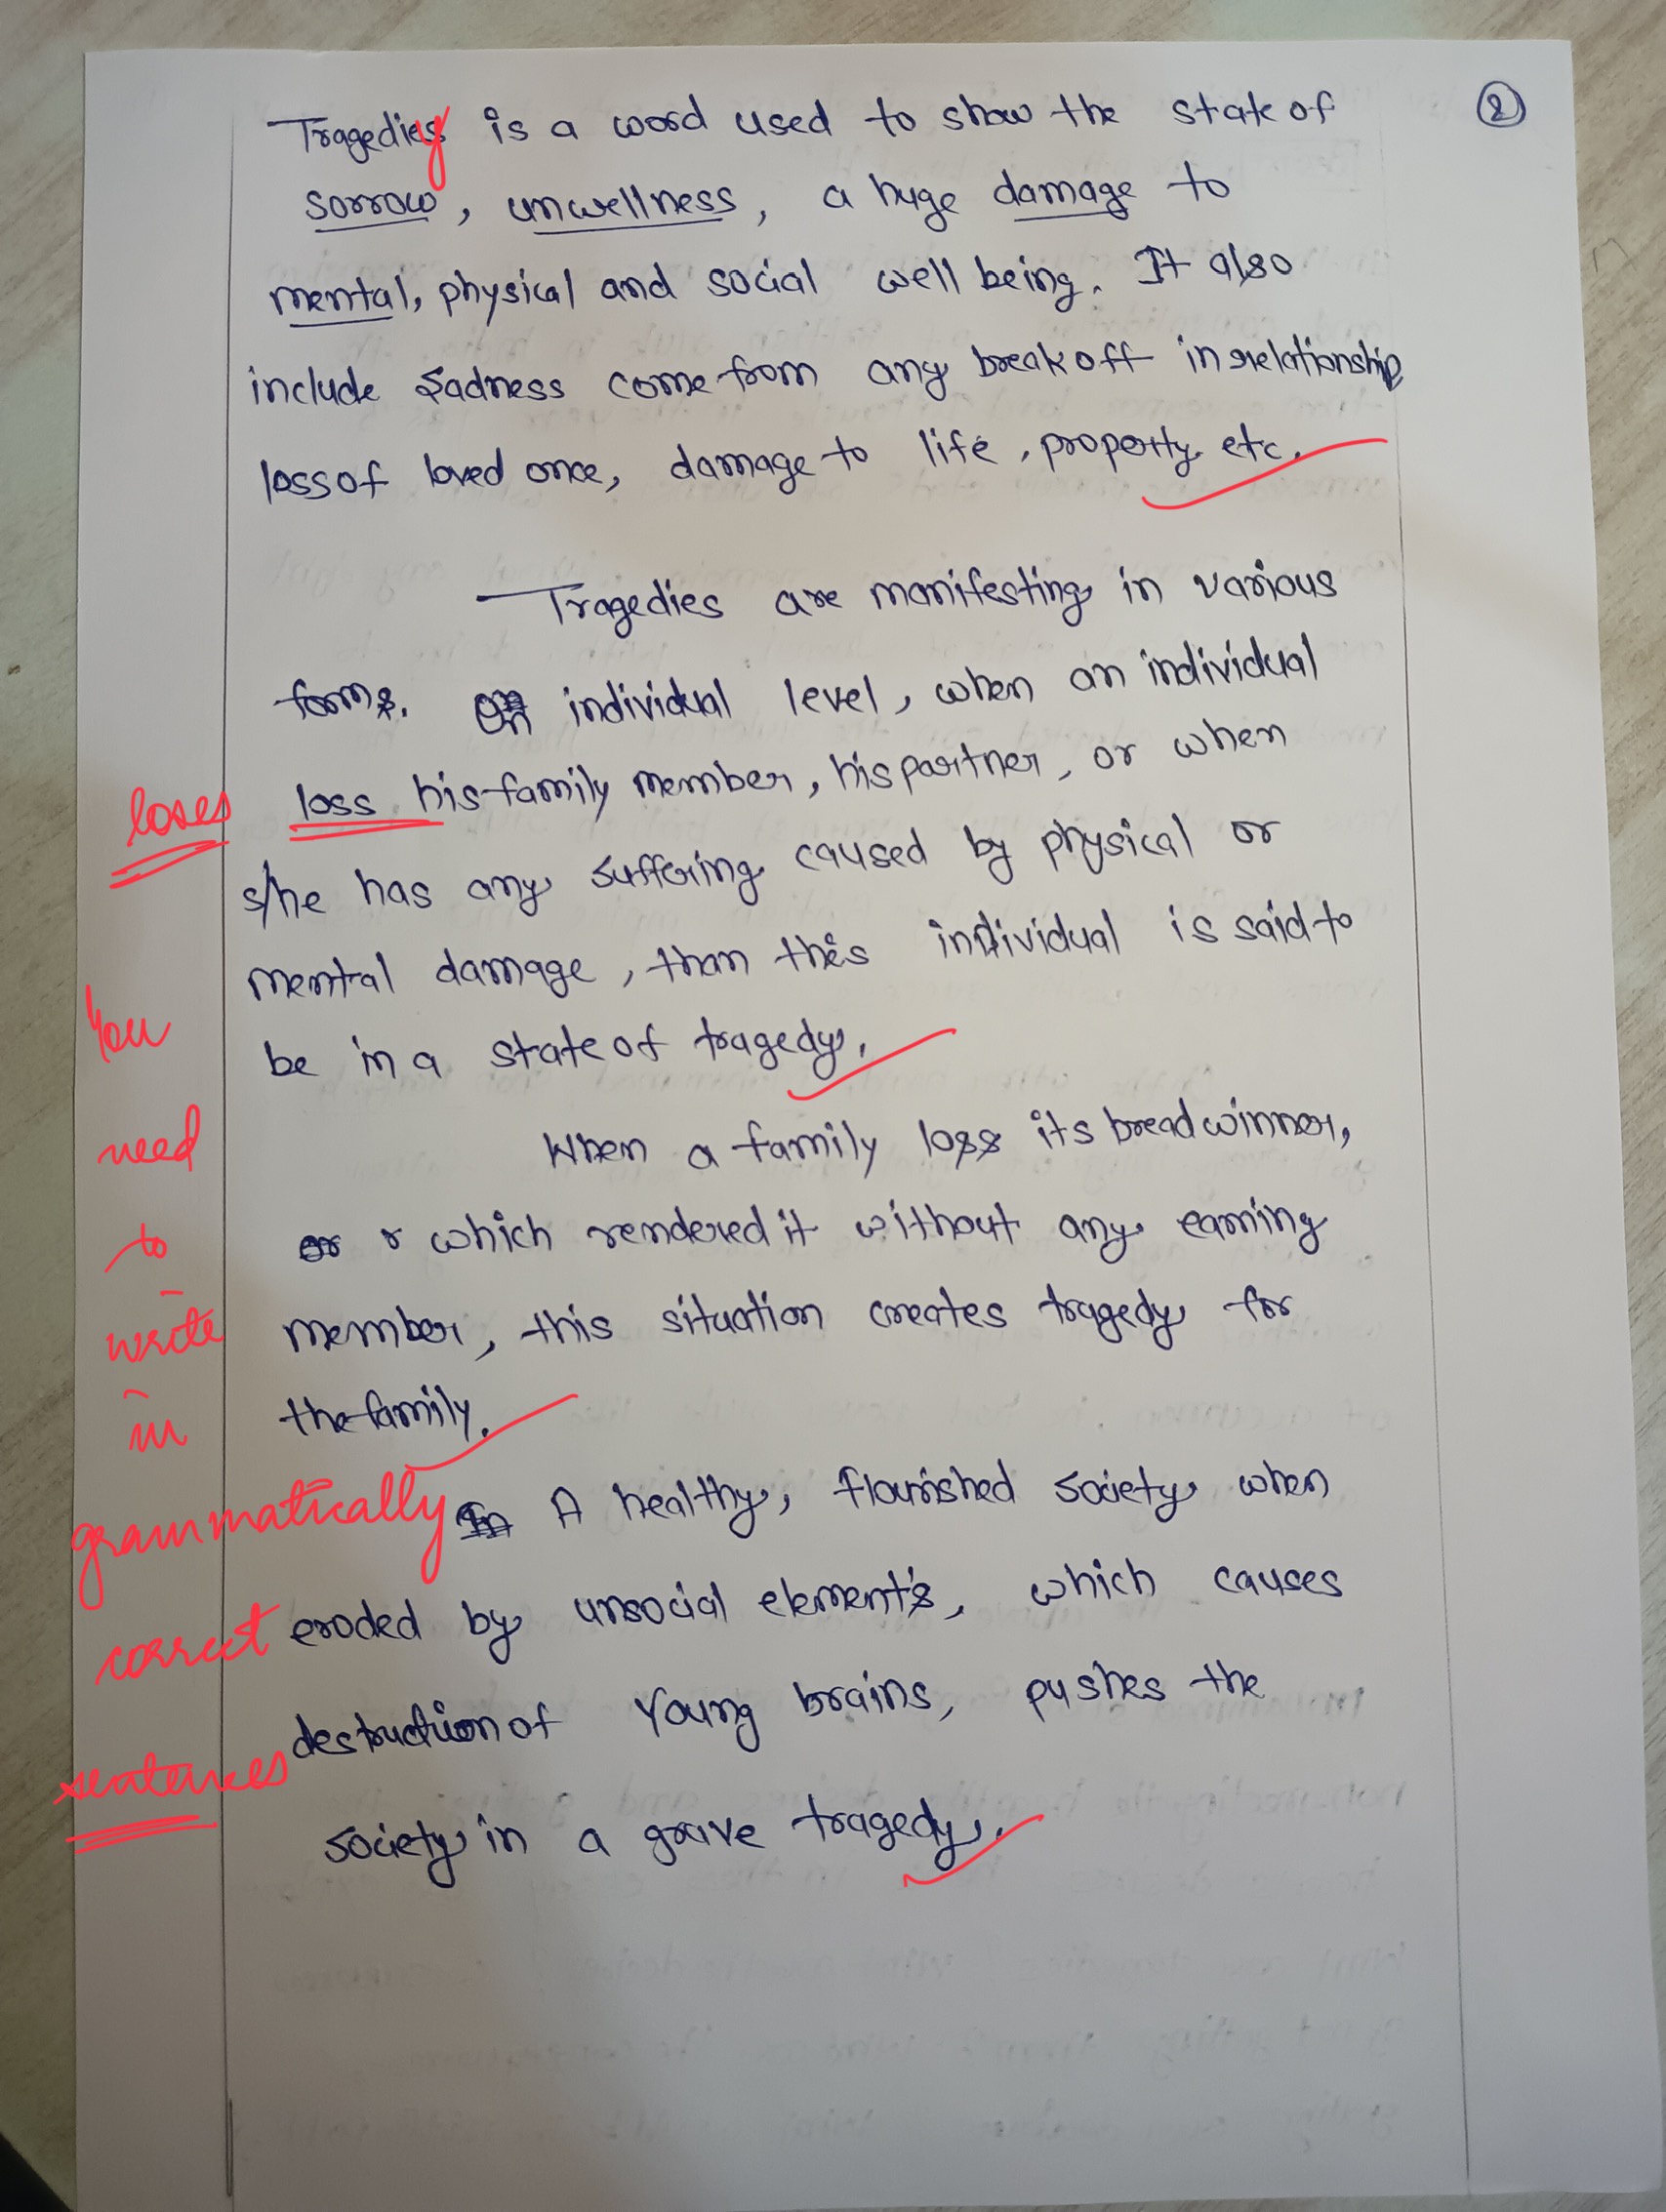 ②
Tragedies is a word used to show the state of
sorrow, unwellness, a huge damage to
mental, physical and social well being. It also
include sadness come from any break off in relationship
loss of loved once, damage to life, property etc.
Tragedies are manifesting in various
forms. On individual level, when an individual
loses
loss his family member, his partner, or when
s/he has any suffering caused by physical or
mental damage, than this individual is said to
be in a state of tragedy.
You
need
to
write
in
grammatically
correct
sentences
When a family loss its bread winner,
or r which rendered it without any earning
member, this situation creates tragedy for
the family.
In A healthy, flourished society when
eroded by unsocial elements, which causes
destruction of Young brains, pushes the
society in a grave tragedy.